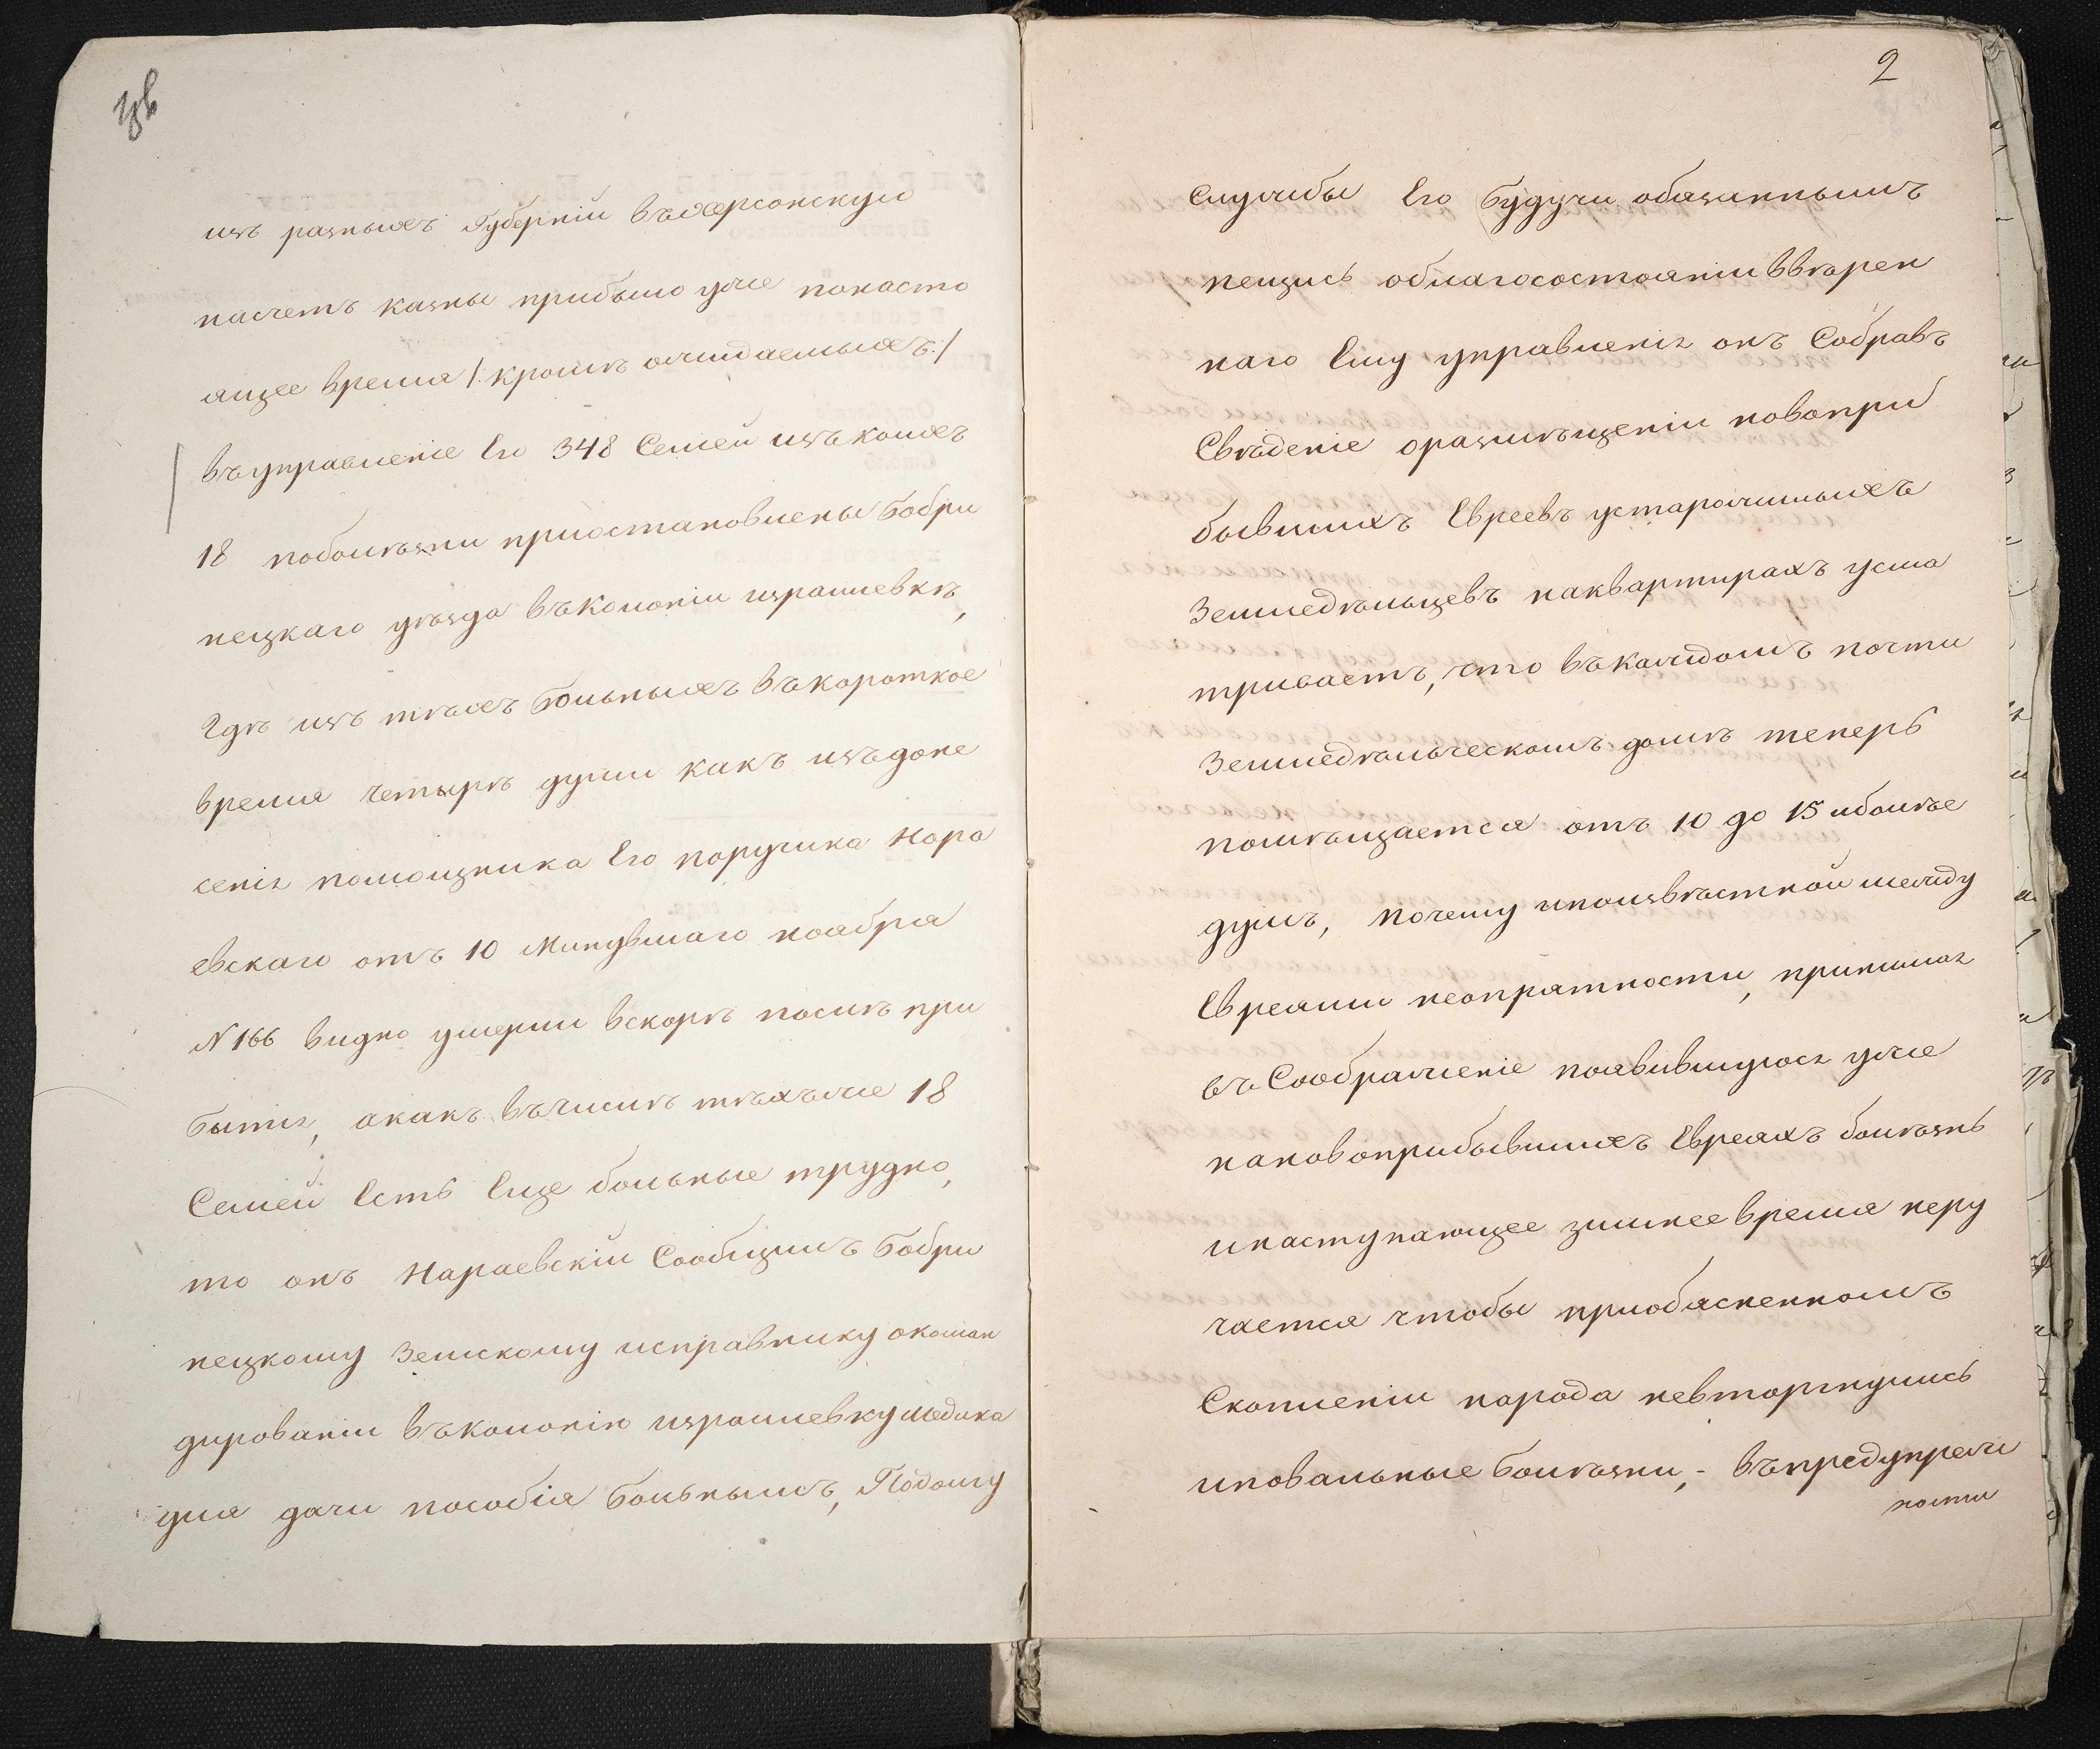 изъ разныхъ Губерній въхерсонскую
насчетъ казны прибыло уже понасто
ящее время /: кромѣ ожидаемыхъ :/
въуправленіе Его 348 Семей изъкоихъ
18 поболѣзни приостановлены Бобри
нецкаго уѣзда въколоніи израилевкѣ,
Гдѣ изъ тѣхъ больныхъ въкороткое
время четырѣ души какъ изъдоне
сенія помощника Его поручика Нара
евскаго отъ 10 минувшаго ноября
N 166 видно умерли вскорѣ послѣ при
бытія, акакъ въчислѣ тѣхъже 18
Семей Есть Еще больные трудно,
то онъ Нараевскій Сообщилъ Бобри
нецкому Земскому исправнику окоман
дированіи въколонію израилевку медика
для дачи пособія больнымъ, Подолгу
2
Службы Его будучи обязаннымъ
пещись облагосостояніи ввѣрен
наго Ему управленія онъ Собравъ
Свѣденіе оразмѣщеніи новопри
бывшихъ Евреевъ устарожилыхъ
Земледѣльцевъ наквартирахъ усма
триваетъ, что въкаждомъ почти
Земледѣльческомъ домѣ теперь
помѣщается отъ 10 до 15 иболѣе
душъ, почему ипоизвѣстной между
Евреями неопрятности, принимая
въ Соображеніе появившуюся уже
нановоприбывшихъ Евреяхъ болѣзнь
инаступающее зимнее время неру
чается чтобы приобясненномъ
Скопленіи народа невторгнулись
иповальные болѣзни, - въпредупреж
ности